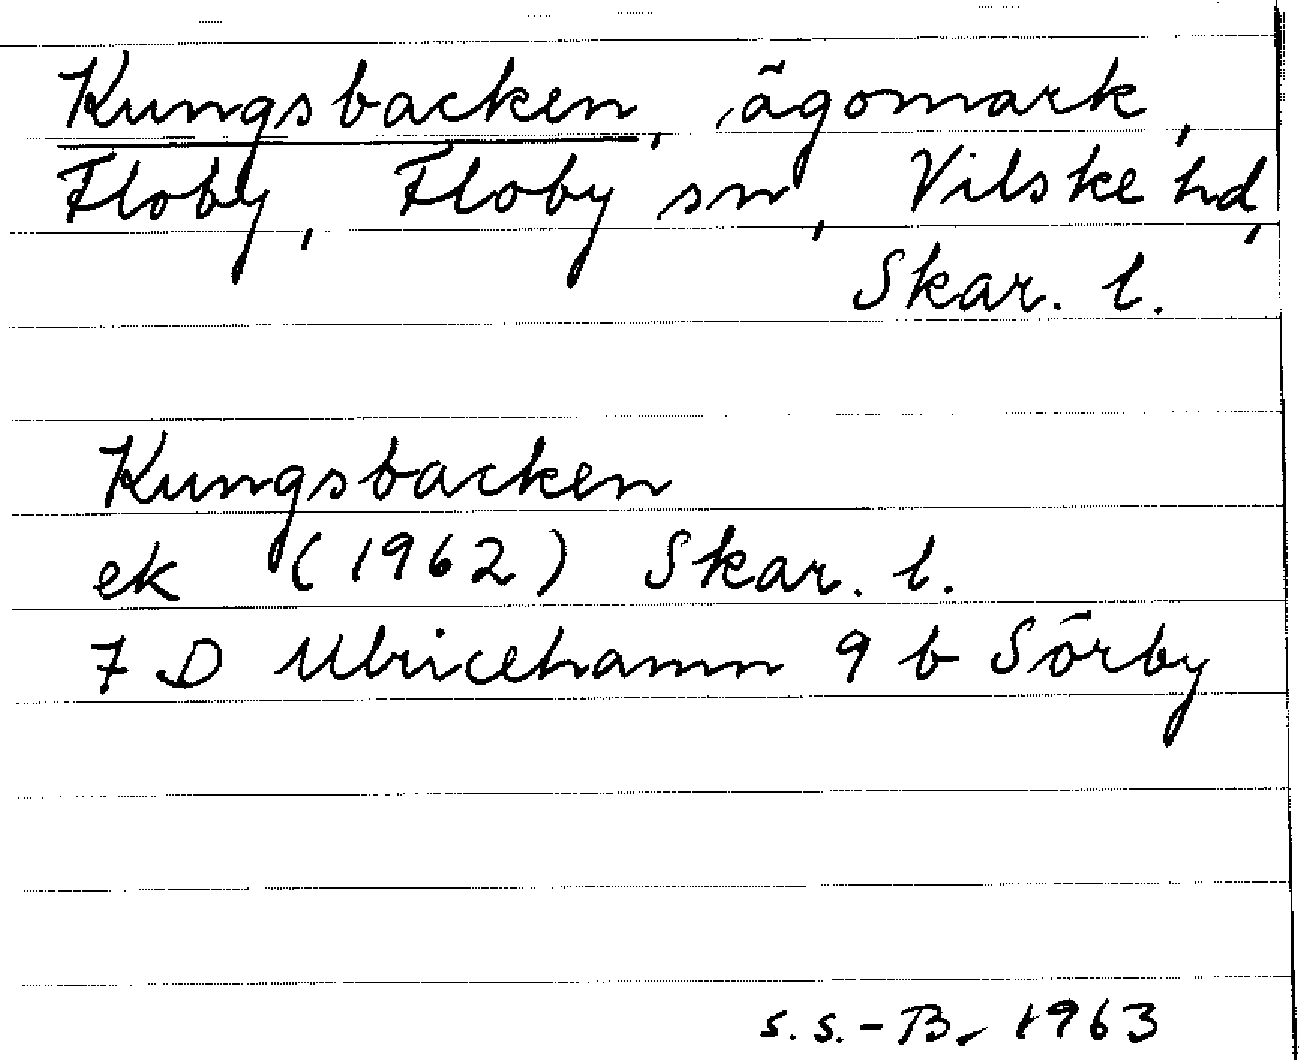 Kungsbacken, ägomark,
Floby, Floby sn, Vilske hd,
Skar. l.
Kungsbacken
ek (1962) Skar. l.
7 D Ulricehamn 9 b Sörby
s.s.-B. 1963